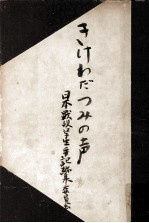 きけわだつみの声
日本戦歿学生手記編集委員会